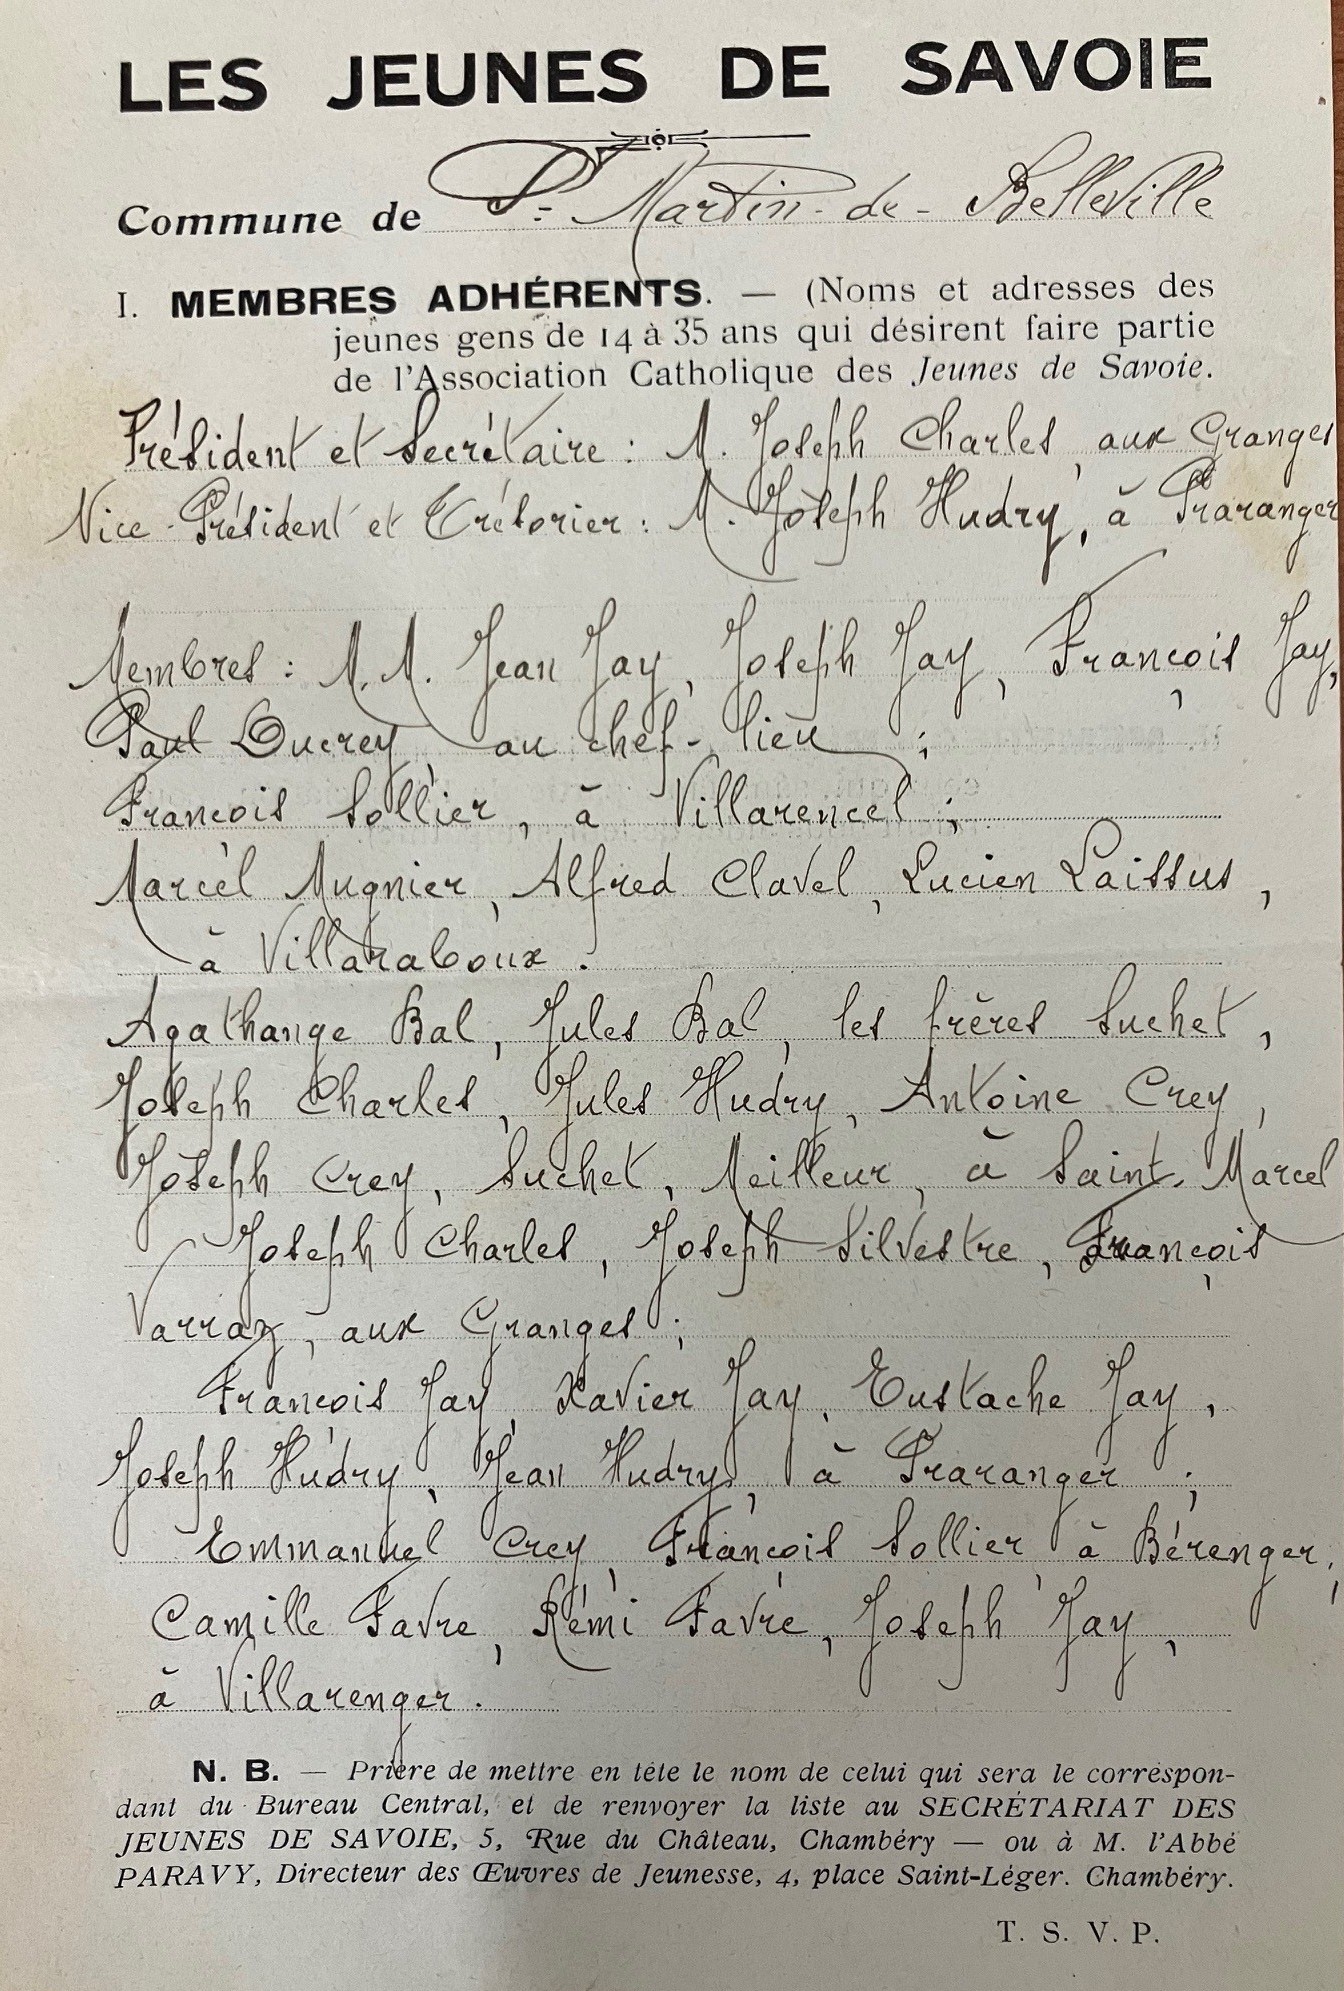 LES JEUNES DE SAVOIE
Commune de St-Martin-de-Belleville
I. MEMBRES ADHÉRENTS. — (Noms et adresses des
jeunes gens de 14 à 35 ans qui désirent faire partie
de l'Association Catholique des Jeunes de Savoie.
Président et Secrétaire : M. Joseph Charles, aux Granges
Vice-Président et Trésorier : M. Joseph Hudry, à Praranger
Membres : M.M. Jean Jay, Joseph Jay, François Jay,
Paul Ducrey au chef-lieu ;
François Sollier, à Villarencel ;
Marcel Mugnier, Alfred Clavel, Lucien Laissus,
à Villaraboux.
Agathange Bal, Jules Bal, les frères Suchet,
Joseph Charles, Jules Hudry, Antoine Crey,
Joseph Crey, Suchet, Meilleur, à Saint-Marcel
Joseph Charles, Joseph Silvestre, François
Varraz, aux Granges ;
François Jay, Xavier Jay, Eustache Jay,
Joseph Hudry, Jean Hudry, à Praranger ;
Emmanuel Crey, François Sollier à Bérenger ;
Camille Favre, Rémi Favre, Joseph Jay,
à Villarenger.
N. B. — Prière de mettre en tête le nom de celui qui sera le correspon-
dant du Bureau Central, et de renvoyer la liste au SECRÉTARIAT DES
JEUNES DE SAVOIE, 5, Rue du Château, Chambéry — ou à M. l'Abbé
PARAVY, Directeur des Œuvres de Jeunesse, 4, place Saint-Léger. Chambéry.
T. S. V. P.